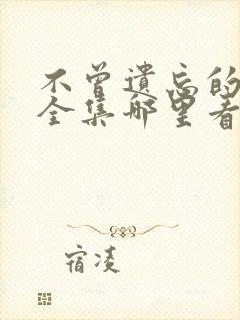 不曾遗忘的
全集哪里看
宿凌